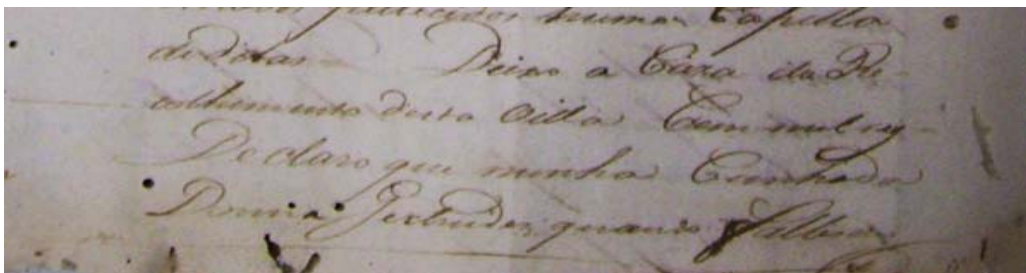 falecidos huma Capella
de ditas — Deixo a Caza do Re-
colhimento desta Villa Cem mil rs —
Declaro que minha Cunhada
Donna Gertrudes, quando falleceo